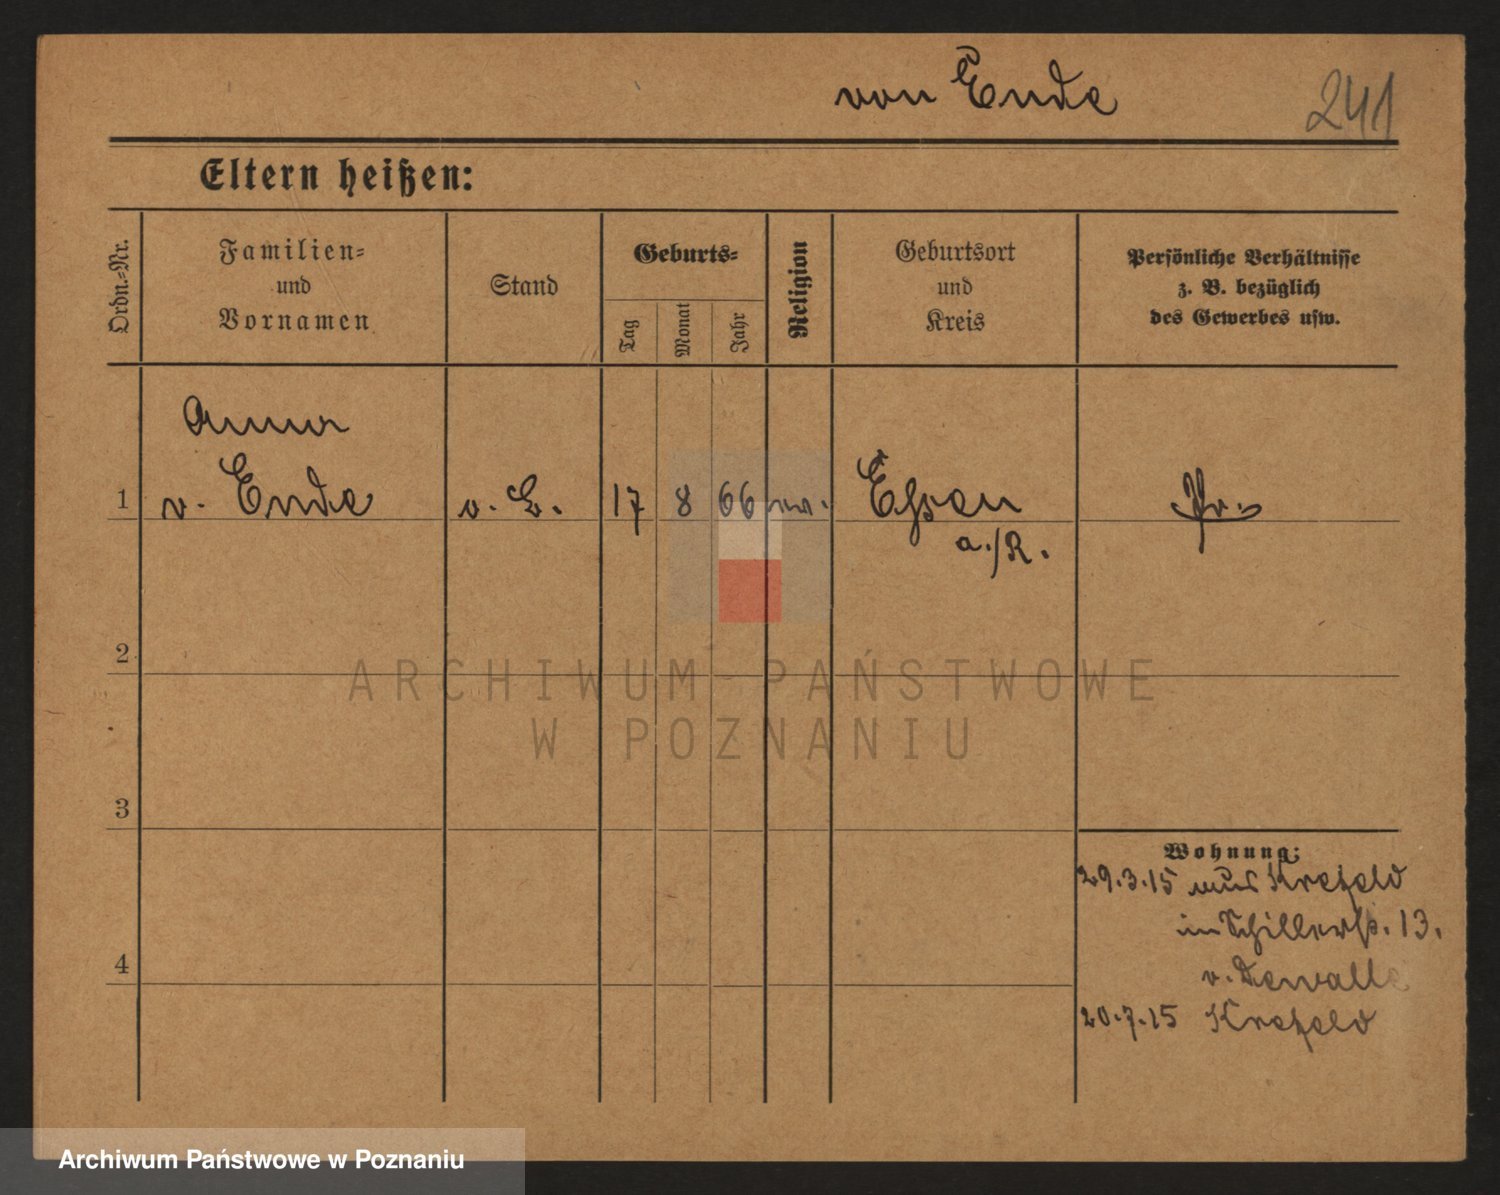 von Ende
241
Eltern heißen:
Ordn.-Nr.
Familien-
und
Vornamen
Stand
Geburts-
Tag
Monat
Jahr
Religion
Geburtsort
und
Kreis
Persönliche Verhältnisse
z. B. bezüglich
des Gewerbes usw.
Anna
1 v. Ende 17 8 66 Essen Pr.
a./R.
2
3
4
Wohnung:
29.3.15 aus Krefeld
in Schillerstr. 13.
v. Dewall
20.7.15 Krefeld
ARCHIWUM PAŃSTWOWE
W POZNANIU
Archiwum Państwowe w Poznaniu